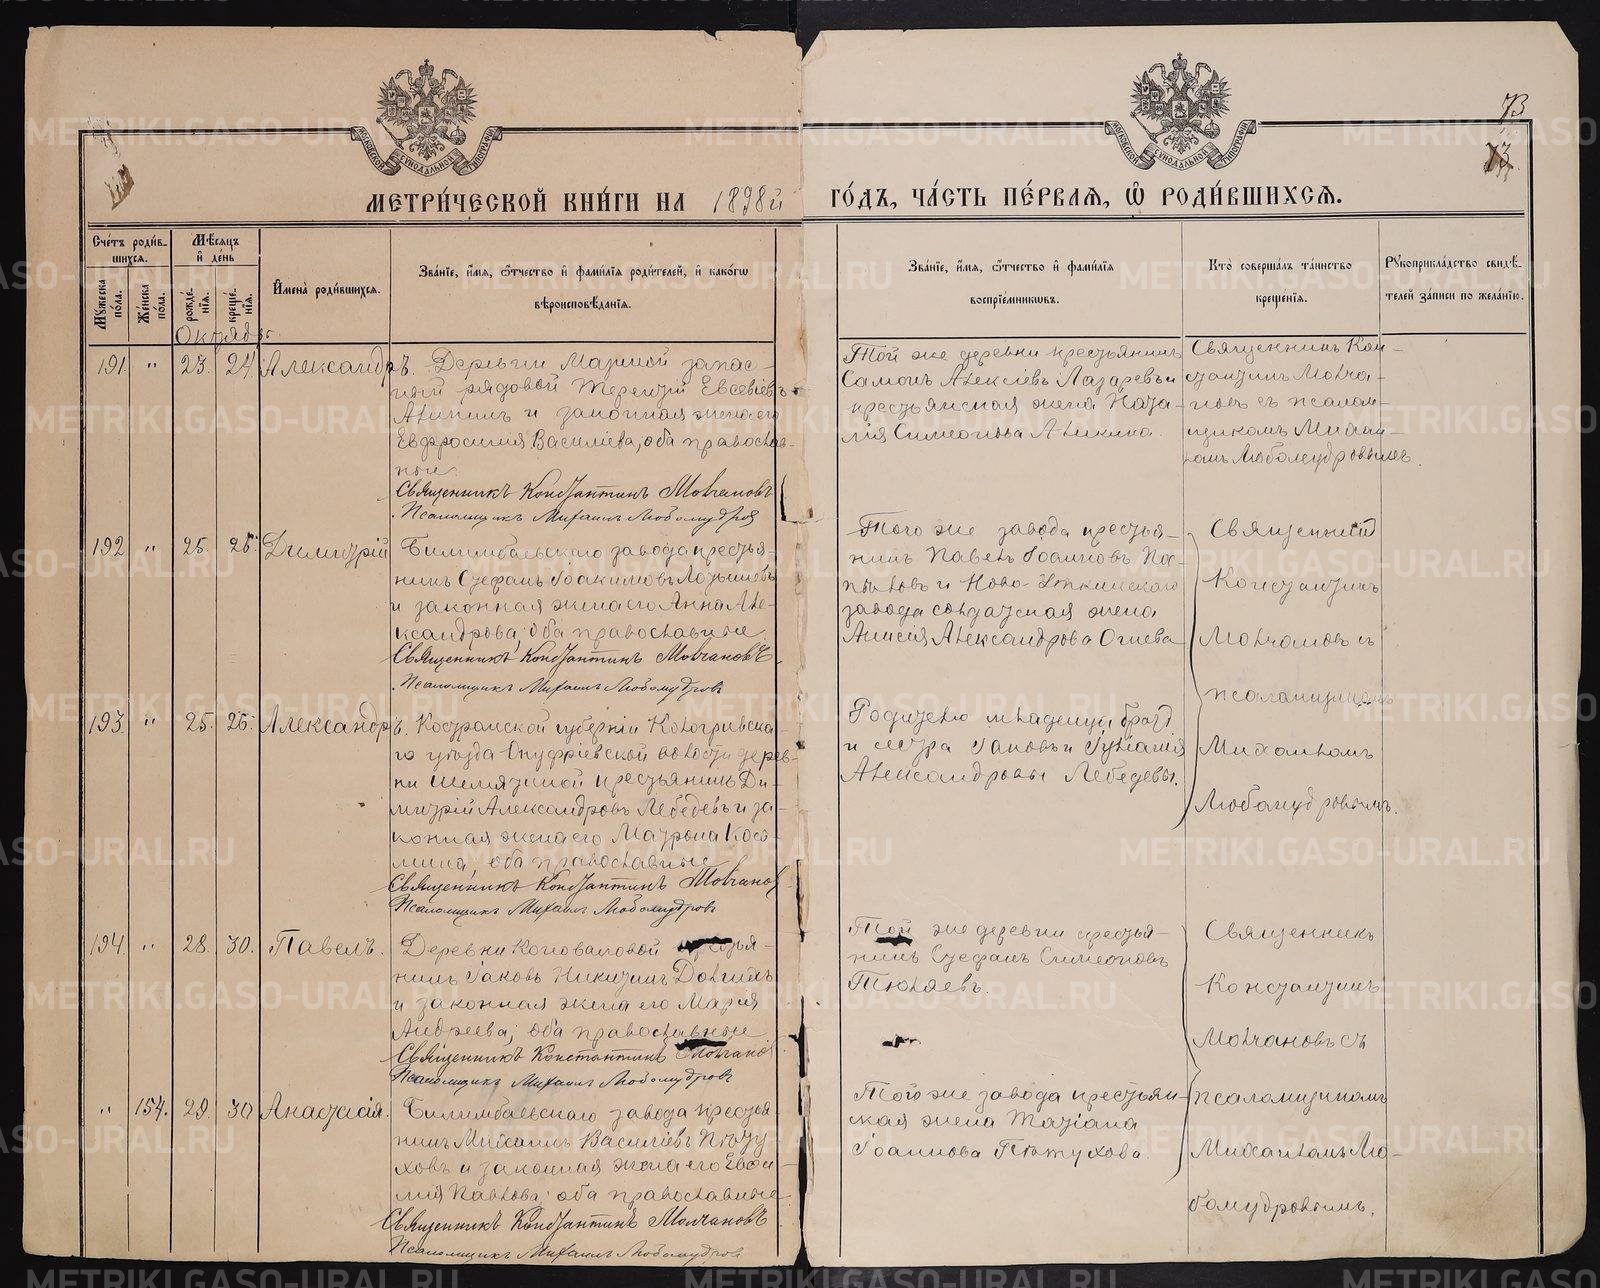 МЕТРИ́ЧЕСКОЙ КНИ́ГИ НА 1898й ГО́ДЪ, ЧА́СТЬ ПЕ́РВАЯ, Ѽ РОДИ́ВШИХСЯ.
73
Сче́тъ роди́в-
шихся.
Мѣ́сяцъ
и де́нь
Му́жеска по́ла.
Же́нска по́ла.
рожде́нія.
креще́нія.
Имена̀ роди́вшихся.
Зва́ніе, и́мя, ѻ́тчество и фами́лія роди́телей, и како́гѡ
вѣроисповѣ́данія.
Зва́ніе, и́мя, ѻ́тчество и фами́лія
воспріе́мниковъ.
Кто̀ соверша́лъ та́инство
креще́нія.
Рукоприкла́дство свидѣ́-
телей за́писи по жела́нію.
Октябрь
191 " 23. 24. Александръ.
Деревни Маримой запас-
ный рядовой Терентій Евсевіевъ
Аликинъ и законная жена его
Евфросинія Василіева, оба православ-
ные.
Священникъ Константинъ Молчановъ
Псаломщикъ Михаилъ Любомудровъ
Той же деревни крестьянинъ
Самонъ Алексіевъ Лазаревъ и
крестьянская жена Ната-
лія Симеонова Аликина.
Священникъ Кон-
стантинъ Молча-
новъ съ псалом-
щикомъ Михаи-
ломъ Любомудровымъ.
192 " 25. 25. Димитрій
Билимбаевскаго завода крестья-
нинъ Стефанъ Іоакимовъ
и законная жена его Анна Але-
ксандрова; оба православные.
Священникъ Константинъ Молчановъ
Псаломщикъ Михаилъ Любомудровъ
Того же завода крестья-
нинъ Павелъ Іоанновъ По-
пыловъ и Ново-Уткинскаго
завода солдатская жена
Анисія Александрова Огнева
Священникъ
Константинъ
Молчановъ съ
псаломщикомъ
Михаиломъ
Любомудровымъ.
193 " 25. 25. Александръ.
Костромской губерніи Кологривска-
го уѣзда Онуфріевской волости дерев-
ни крестьянинъ Ди-
митрій Александровъ Лебедевъ и за-
конная жена его Матрона Косо-
мина, оба православные
Священникъ Константинъ Молчановъ
Псаломщикъ Михаилъ Любомудровъ
Родителю младенца братъ
и сестра Іаковъ и Іуліанія
Александровы Лебедевы.
194 " 28. 30. Павелъ.
Деревни Коноваловой крестья-
нинъ Іаковъ Никитинъ Долгихъ
и законная жена его Марія
Андреева; оба православные
Священникъ Константинъ Молчановъ
Псаломщикъ Михаилъ Любомудровъ
Той же деревни крестья-
нинъ Стефанъ Симеоновъ
Тюляевъ.
Священникъ
Константинъ
Молчановъ съ
псаломщикомъ
Михаиломъ Лю-
бомудровымъ.
" 154. 29. 30 Анастасія.
Билимбаевскаго завода крестья-
нинъ Михаилъ Василіевъ Пѣту-
ховъ и законная жена его Евфи-
мія Павлова; оба православные
Священникъ Константинъ Молчановъ
Псаломщикъ Михаилъ Любомудровъ
Того же завода крестьян-
ская жена Татіана
Іоаннова Пѣтухова.
METRIKI.GASO-URAL.RU